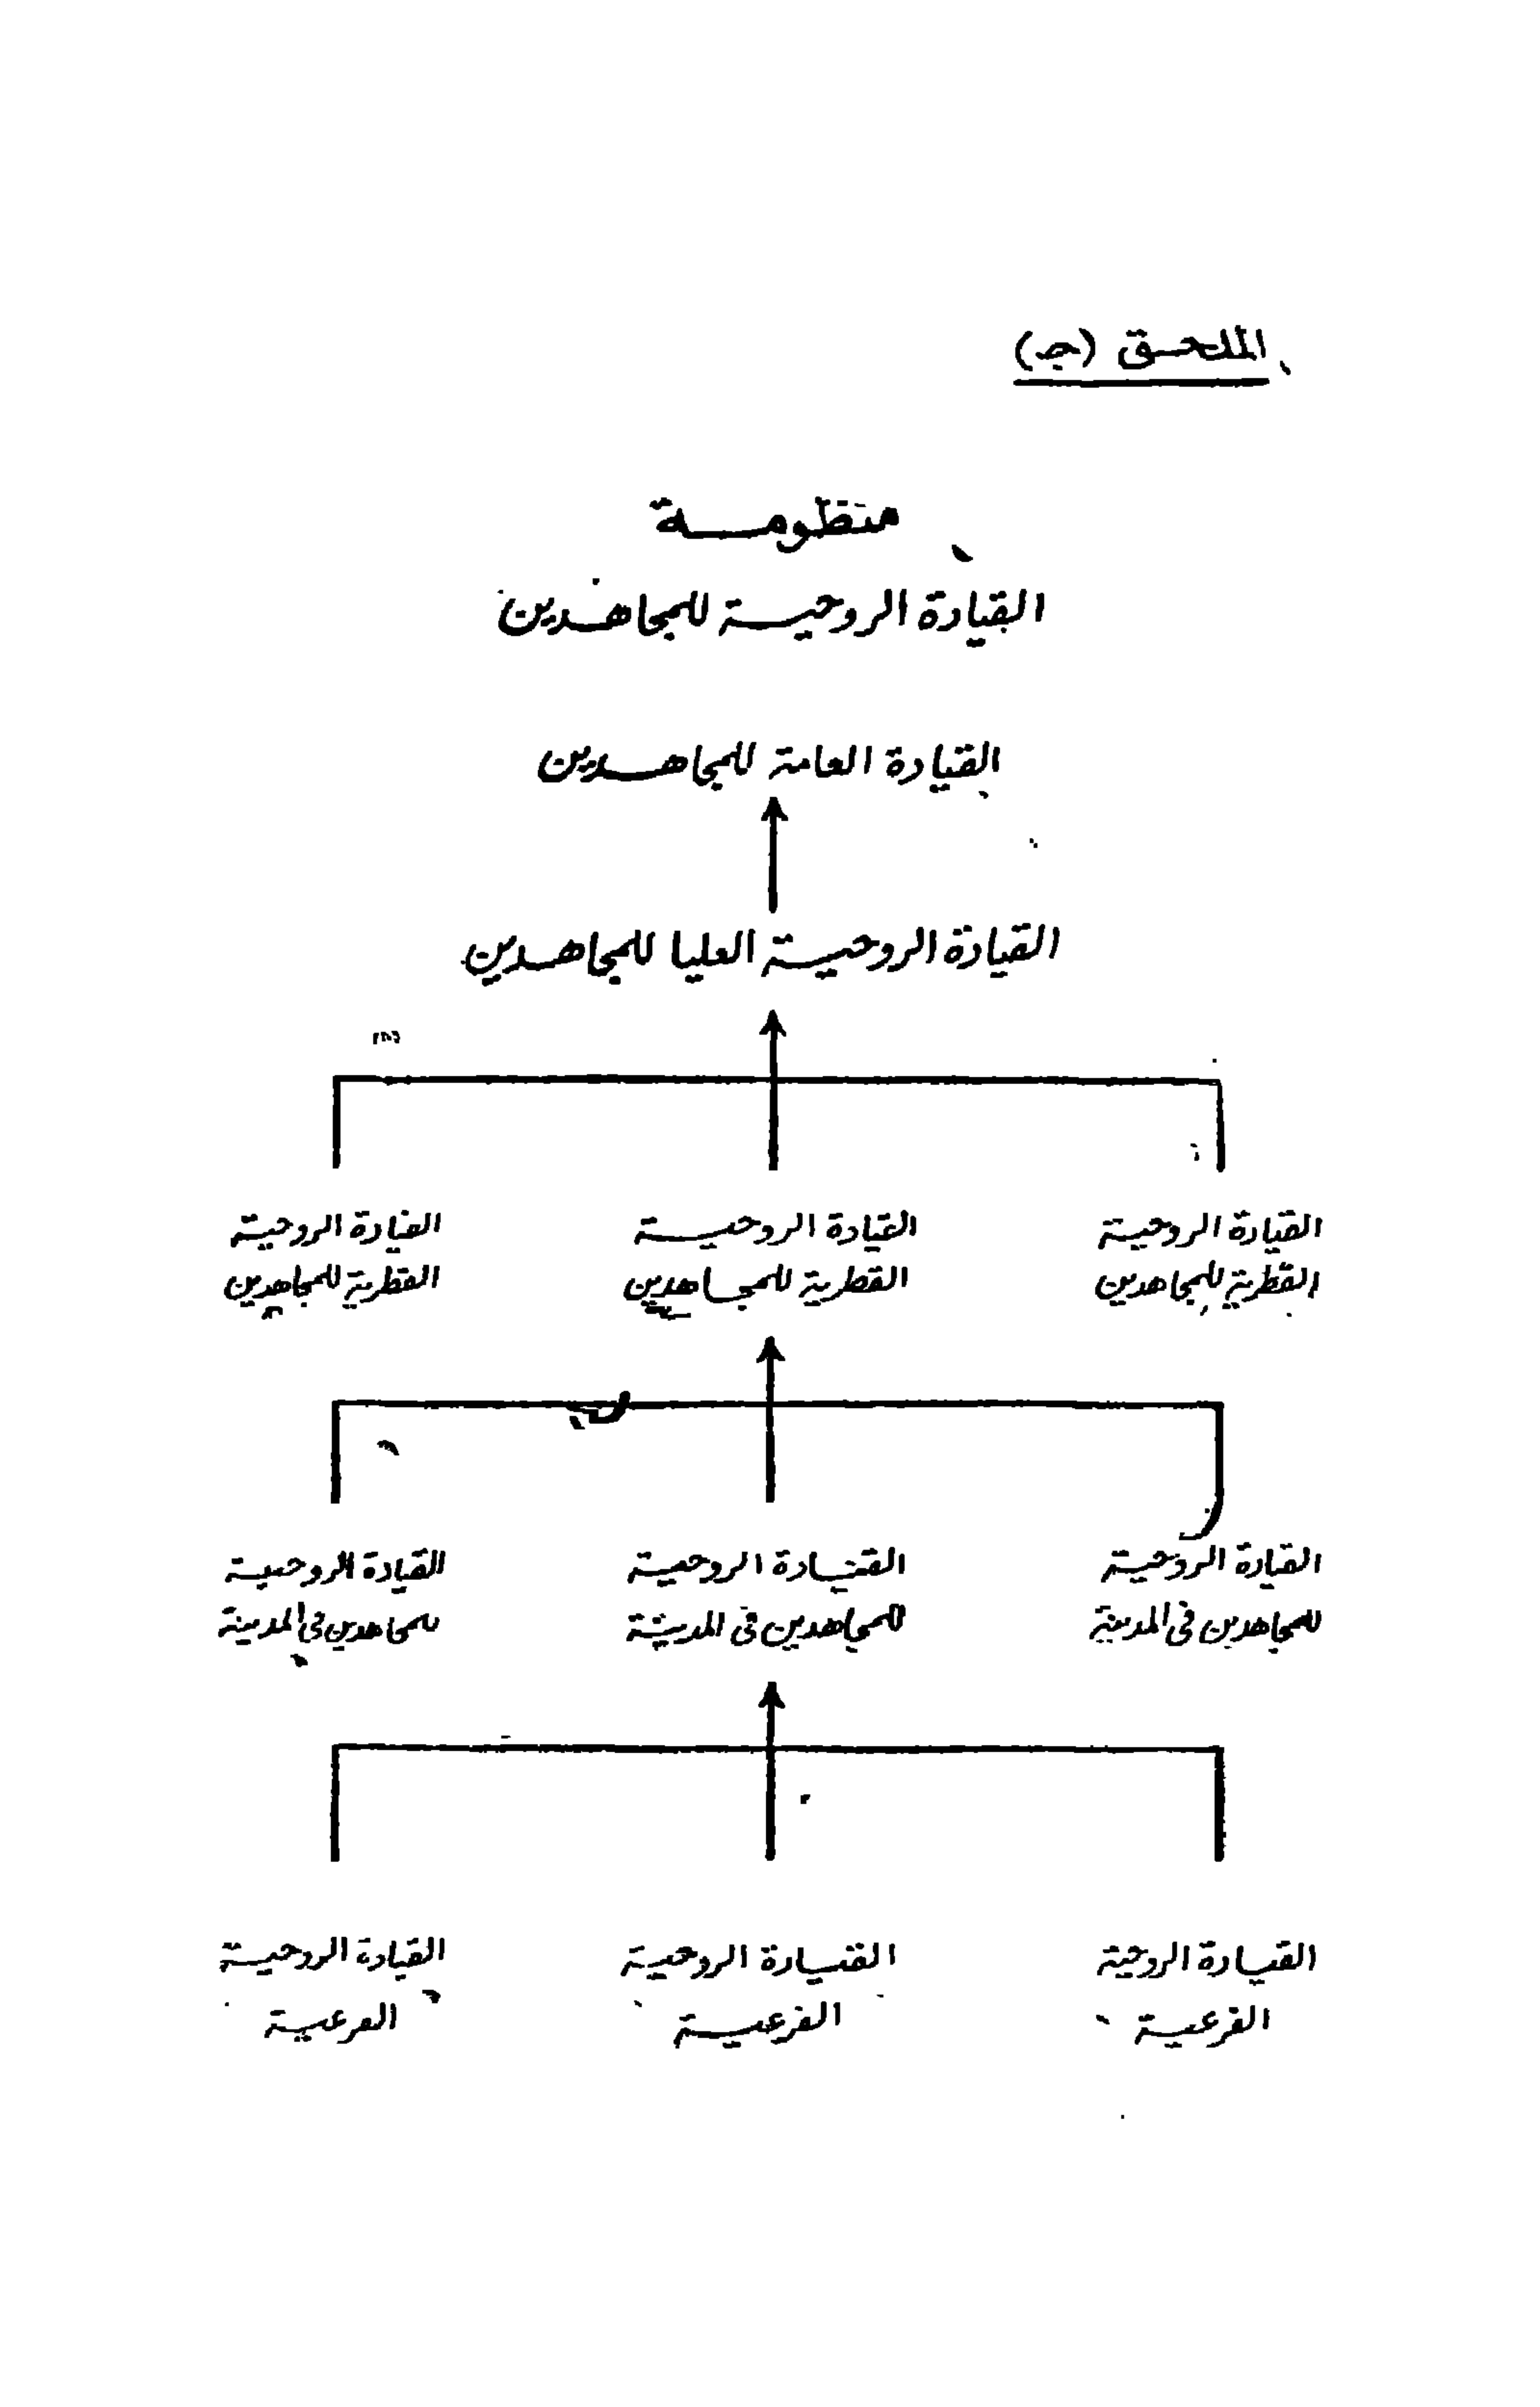 الملحق (جـ)
منظومة
القيادة الروحية للمجاهدين
القيادة العامة للمجاهدين
القيادة الروحية العليا للمجاهدين
القيادة الروحية
القطرية للمجاهدين
القيادة الروحية
القطرية للمجاهدين
القيادة الروحية
القطرية للمجاهدين
القيادة الروحية
للمجاهدين في المدينة
القيادة الروحية
للمجاهدين في المدينة
القيادة الروحية
للمجاهدين في المدينة
القيادة الروحية
الفرعية
القيادة الروحية
الفرعية
القيادة الروحية
الفرعية